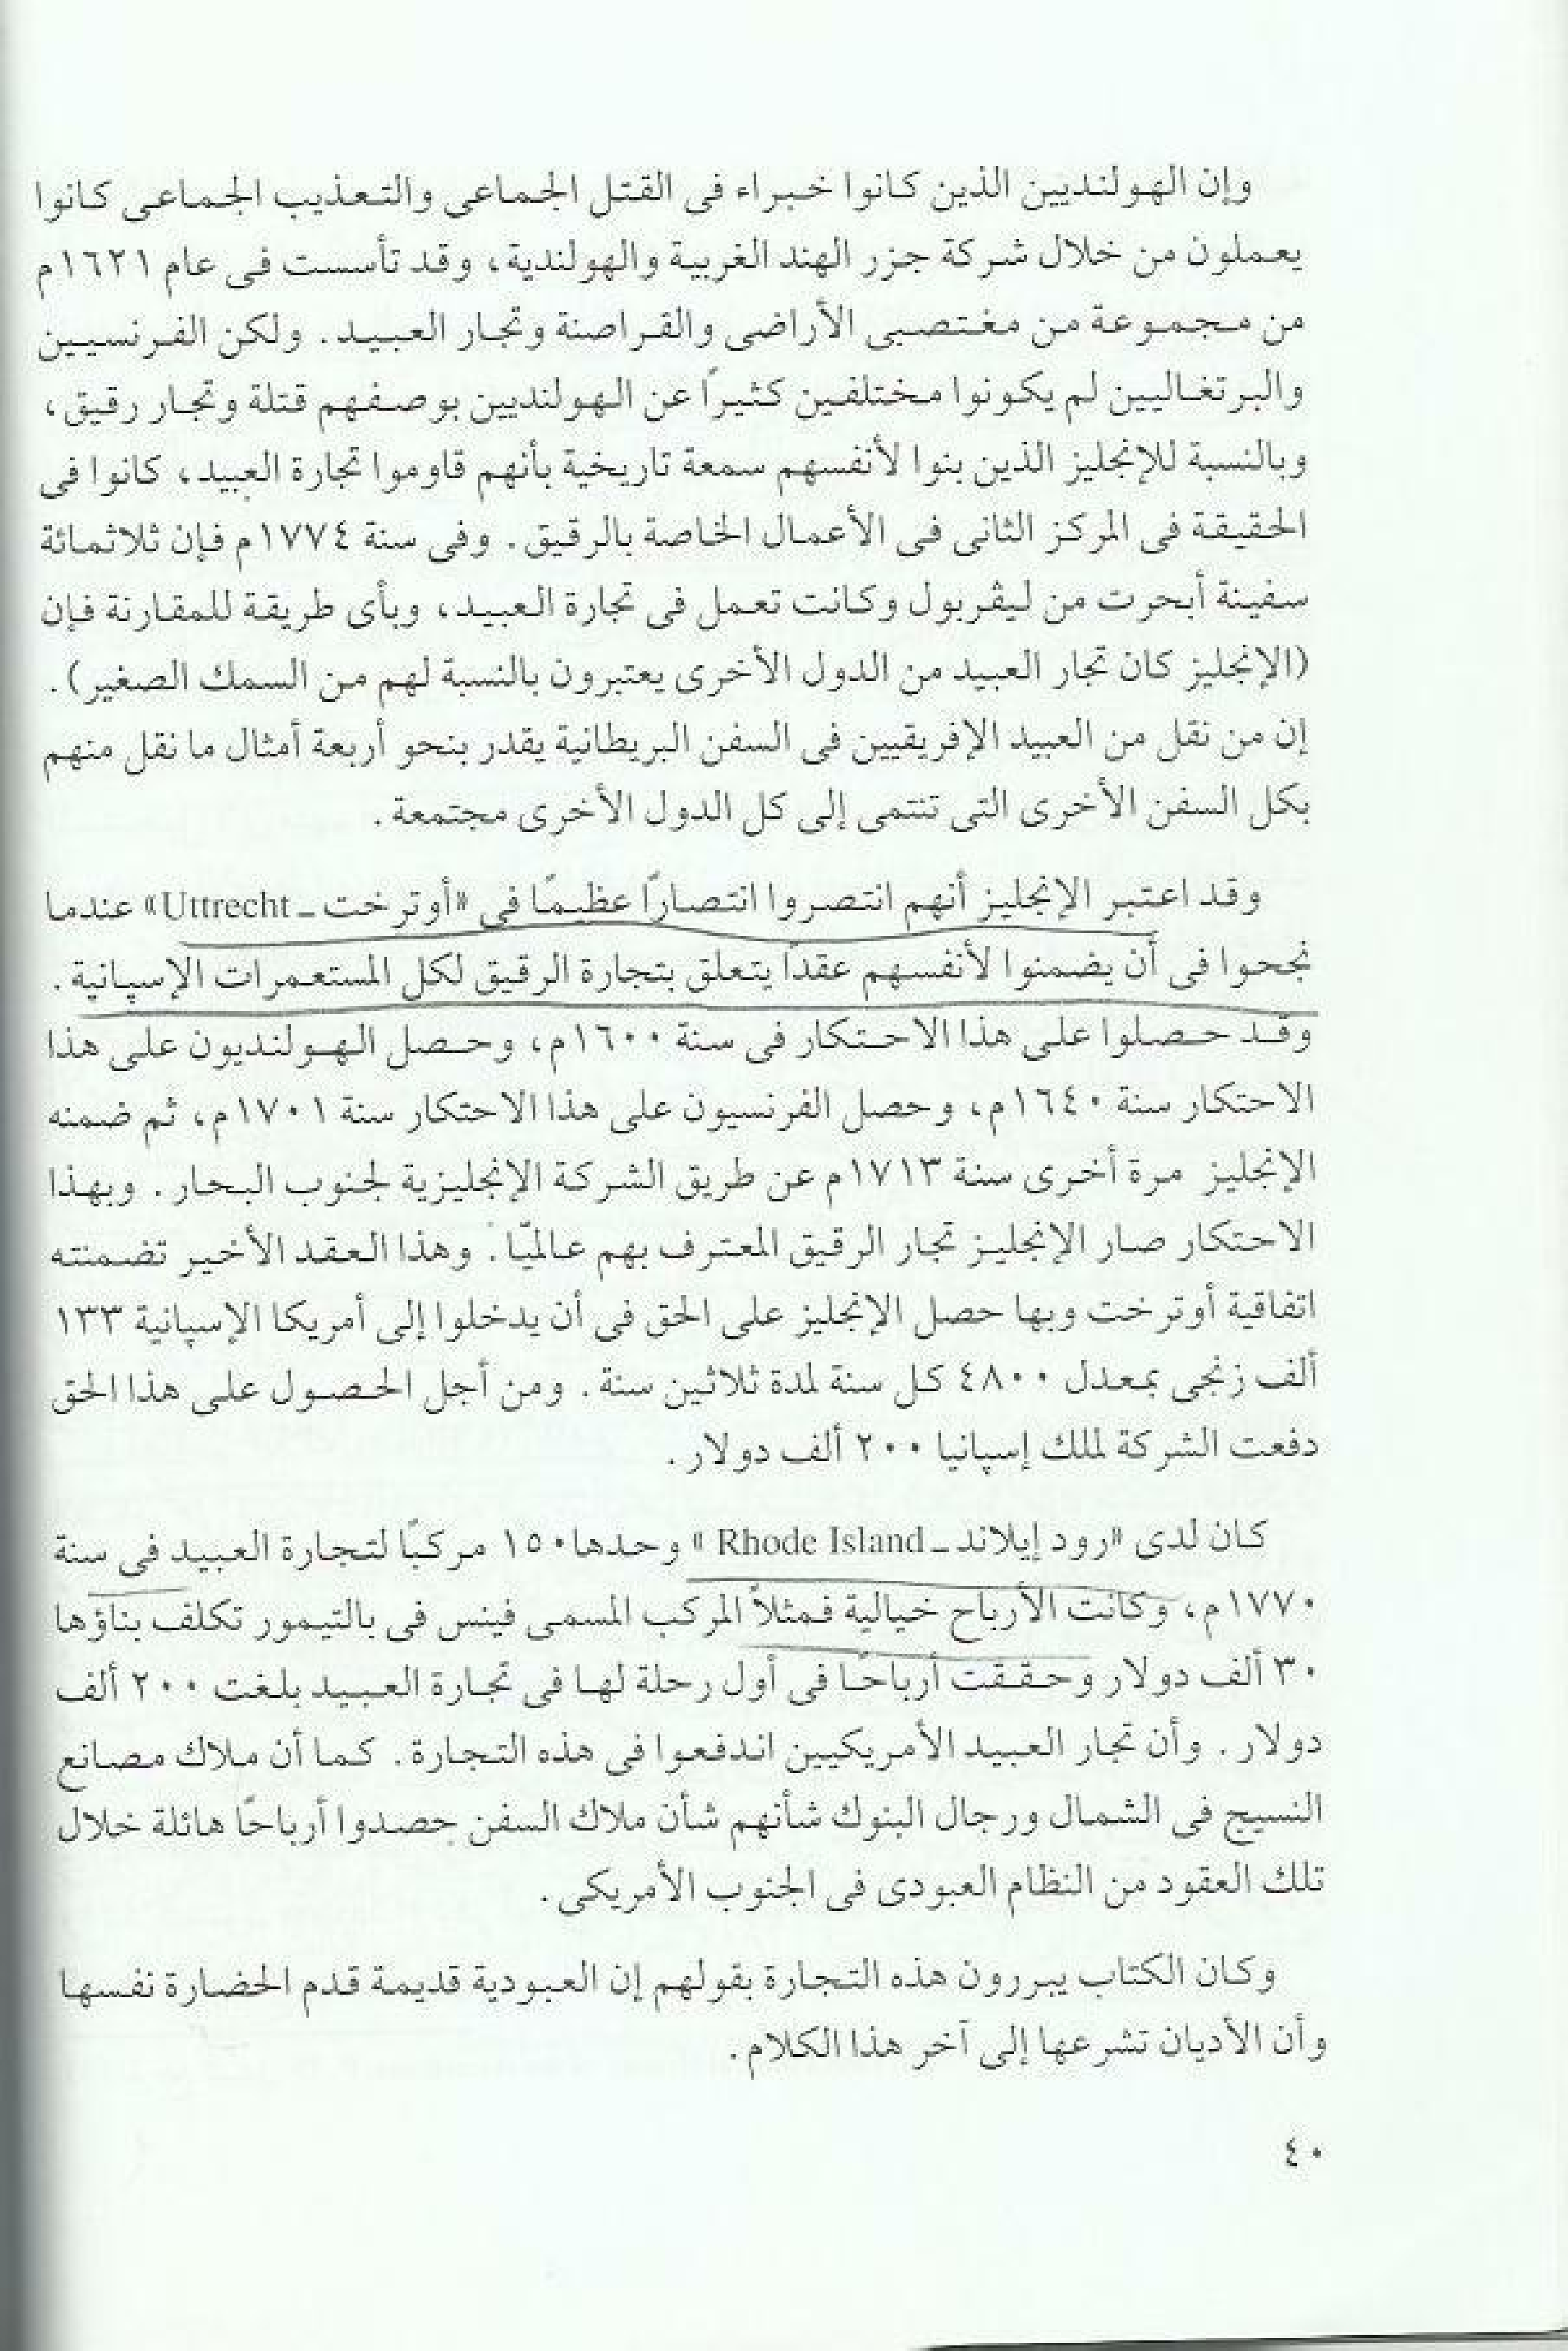 وإن الهولنديين الذين كانوا خبراء فى القتل الجماعى والتعذيب الجماعى كانوا
يعملون من خلال شركة جزر الهند الغربية والهولندية، وقد تأسست فى عام ١٦٢١م
من مجموعة من مغتصبى الأراضى والقراصنة وتجار العبيد. ولكن الفرنسيين
والبرتغاليين لم يكونوا مختلفين كثيرًا عن الهولنديين بوصفهم قتلة وتجار رقيق،
وبالنسبة للإنجليز الذين بنوا لأنفسهم سمعة تاريخية بأنهم قاوموا تجارة العبيد، كانوا فى
الحقيقة فى المركز الثانى فى الأعمال الخاصة بالرقيق. وفى سنة ١٧٧٤م فإن ثلاثمائة
سفينة أبحرت من ليڤربول وكانت تعمل فى تجارة العبيد، وبأى طريقة للمقارنة فإن
(الإنجليز كان تجار العبيد من الدول الأخرى يعتبرون بالنسبة لهم من السمك الصغير).
إن من نقل من العبيد الإفريقيين فى السفن البريطانية يقدر بنحو أربعة أمثال ما نقل منهم
بكل السفن الأخرى التى تنتمى إلى كل الدول الأخرى مجتمعة.
وقد اعتبر الإنجليز أنهم انتصروا انتصارًا عظيمًا فى «أوترخت ـ Uttrecht» عندما
نجحوا فى أن يضمنوا لأنفسهم عقدًا يتعلق بتجارة الرقيق لكل المستعمرات الإسپانية.
وقد حصلوا على هذا الاحتكار فى سنة ١٦٠٠م، وحصل الهولنديون على هذا
الاحتكار سنة ١٦٤٠م، وحصل الفرنسيون على هذا الاحتكار سنة ١٧٠١م، ثم ضمنه
الإنجليز مرة أخرى سنة ١٧١٣م عن طريق الشركة الإنجليزية لجنوب البحار. وبهذا
الاحتكار صار الإنجليز تجار الرقيق المعترف بهم عالميّا. وهذا العقد الأخير تضمنته
اتفاقية أوترخت وبها حصل الإنجليز على الحق فى أن يدخلوا إلى أمريكا الإسپانية ١٣٣
ألف زنجى بمعدل ٤٨٠٠ كل سنة لمدة ثلاثين سنة. ومن أجل الحصول على هذا الحق
دفعت الشركة لملك إسپانيا ٢٠٠ ألف دولار.
كان لدى «رود إيلاند ـ Rhode Island» وحدها ١٥٠ مركبًا لتجارة العبيد فى سنة
١٧٧٠م، وكانت الأرباح خيالية فمثلاً المركب المسمى فينس فى بالتيمور تكلف بناؤها
٣٠ ألف دولار وحققت أرباحًا فى أول رحلة لها فى تجارة العبيد بلغت ٢٠٠ ألف
دولار. وأن تجار العبيد الأمريكيين اندفعوا فى هذه التجارة. كما أن ملاك مصانع
النسيج فى الشمال ورجال البنوك شأنهم شأن ملاك السفن حصدوا أرباحًا هائلة خلال
تلك العقود من النظام العبودى فى الجنوب الأمريكى.
وكان الكتاب يبررون هذه التجارة بقولهم إن العبودية قديمة قدم الحضارة نفسها
وأن الأديان تشرعها إلى آخر هذا الكلام.
٤٠